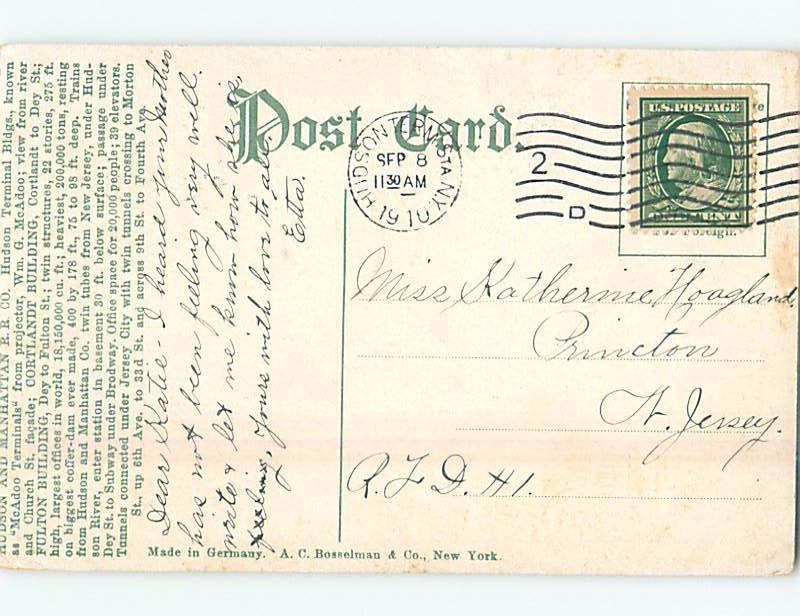 HUDSON AND MANHATTAN R. R. CO. Hudson Terminal Bldgs., known
as "McAdoo Terminals" from projector, Wm. G. McAdoo; view from river
and Church St. façade; CORTLANDT BUILDING, Cortlandt to Dey St.;
FULTON BUILDING, Dey to Fulton St.; twin structures, 22 stories, 275 ft.
high, largest offices in world, 18,150,000 cu. ft.; heaviest, 200,000 tons, resting
on biggest coffer-dam ever made, 400 by 178 ft., 75 to 98 ft. deep. Trains
from Hudson and Manhattan Co. twin tubes from New Jersey, under Hud-
son River, enter station in basement 30 ft. below surface; passage under
Dey St. to Subway under Brodway. Office space for 20,000 people; 39 elevators.
Tunnels connected under Jersey City with twin tunnels crossing to Morton
St., up 6th Ave. to 33d St. and across 9th St. to Fourth Ave.
Dear Katie - I heard your Mother
has not been feeling very well.
write & let me know how she is
feeling, Yours with love to all
Etta.
Post Card.
HUDSON TERM. STA. N.Y.
SEP 8
11 30 AM
1910
2
D
U.S. POSTAGE
ONE CENT
for Foreign.
Miss Katherine Hoagland,
Princeton
N. Jersey.
R. F. D. #1.
Made in Germany. A. C. Bosselman & Co., New York.